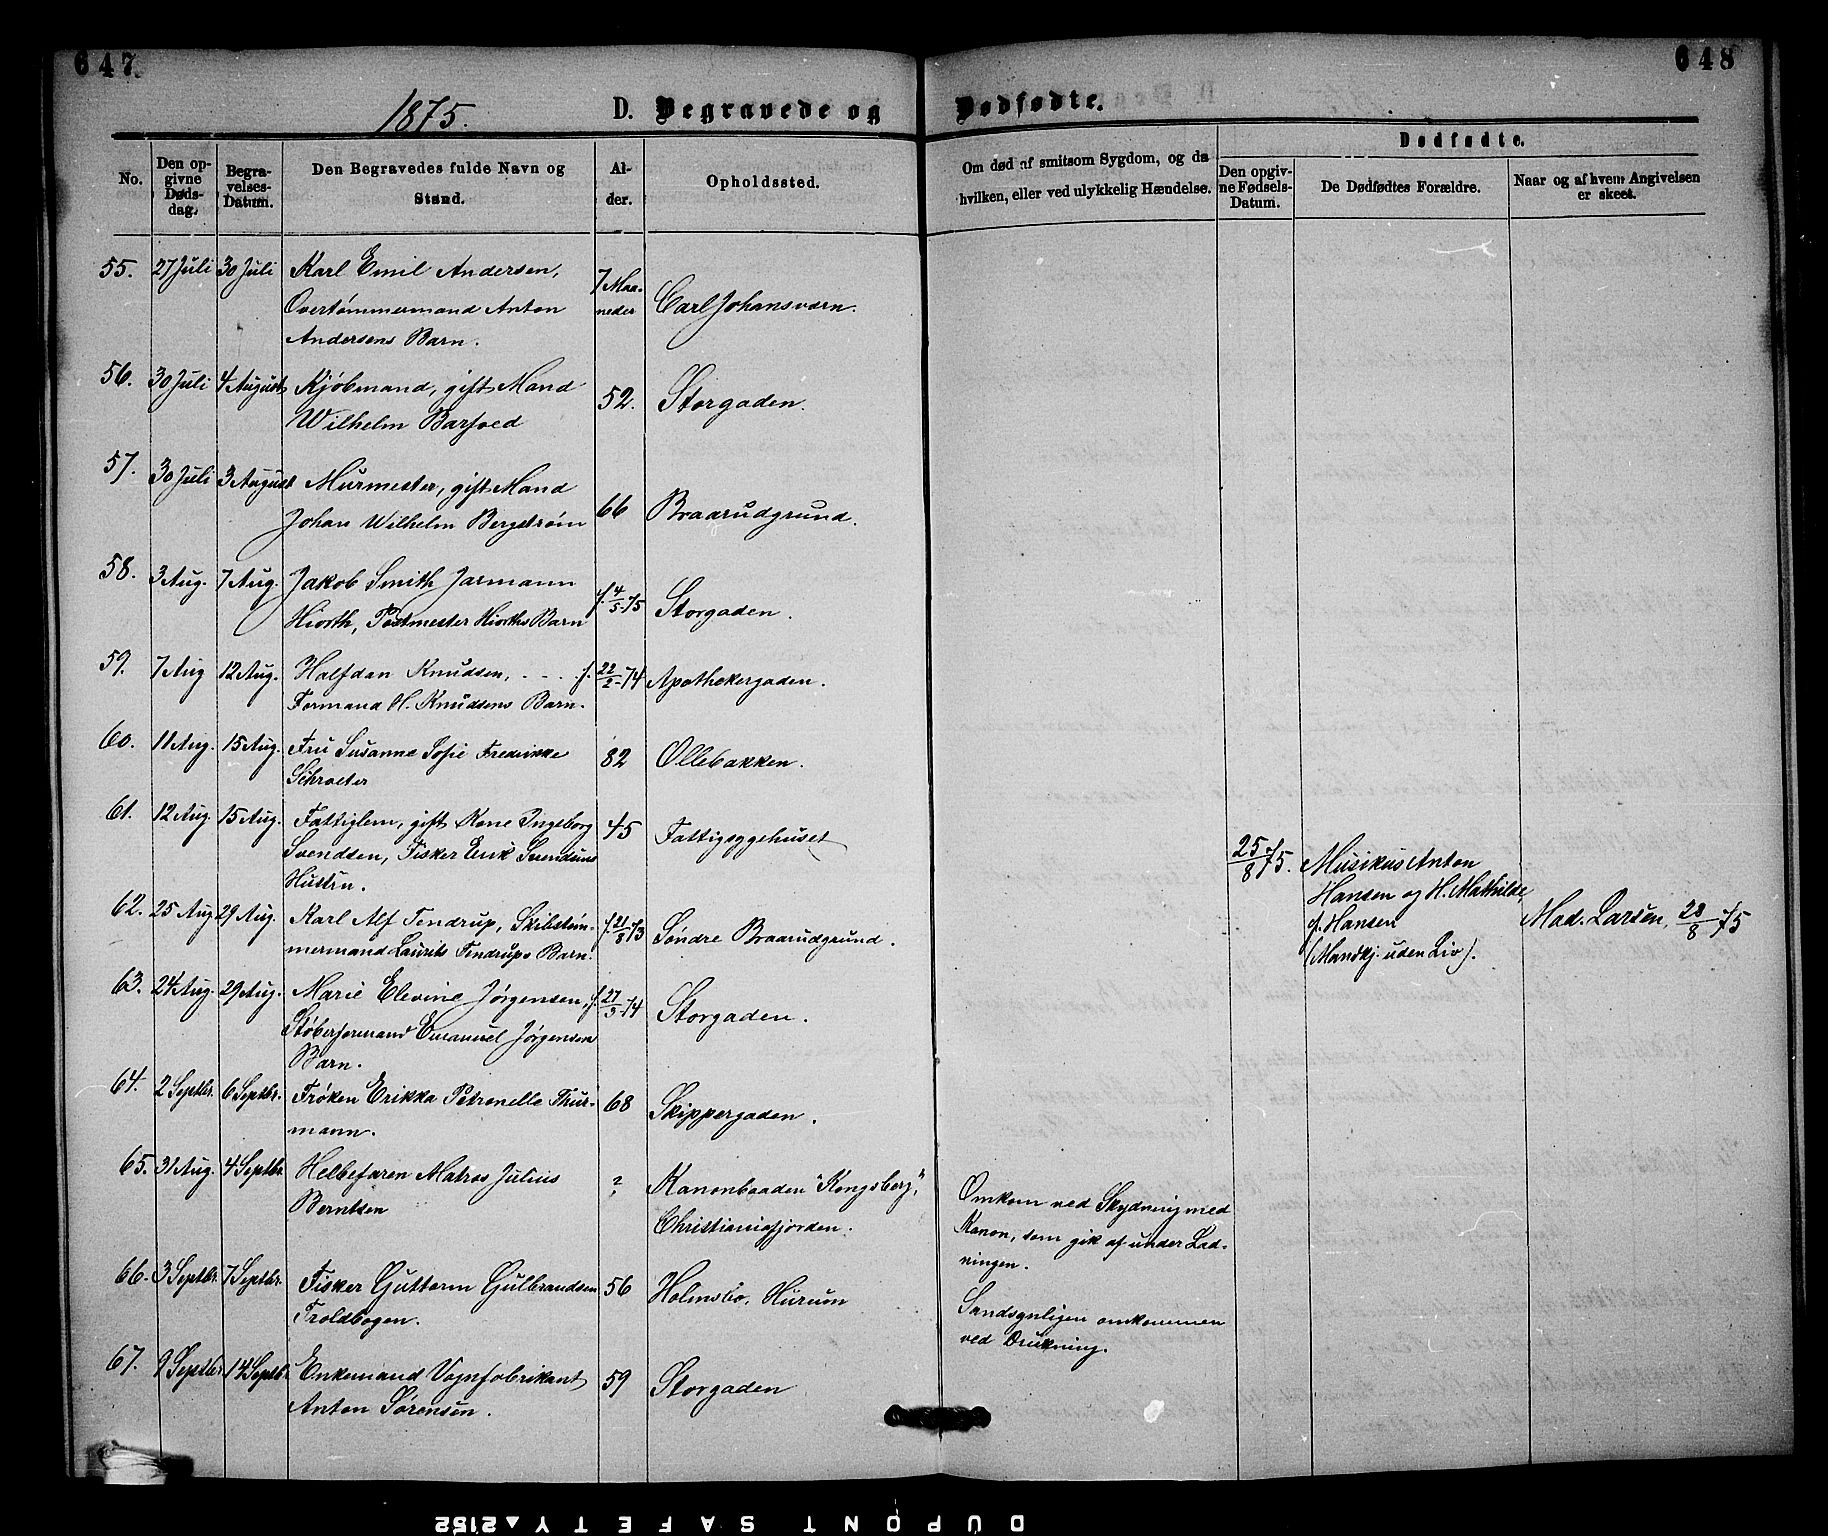 647.
648
1875. D. Begravede og Dødfødte.
No.
Den op-
givne
Døds-
dag.
Begra-
velses-
Datum.
Den Begravedes fulde Navn og
Stand.
Al-
der.
Opholdssted.
Om død af smitsom Sygdom, og da
hvilken, eller ved ulykkelig Hændelse.
Dødfødte.
Den opgiv-
ne Fødsels-
Datum.
De Dødfødtes Forældre.
Naar og af hvem Angivelsen
er skeet.
55. 27 Juli 30 Juli Karl Emil Andersen,
Overtømmermand Anton
Andersens Barn.
7 Maa-
neder
Carljohansværn.
56. 30 Juli 4 August Kjøbmand, gift Mand
Wilhelm Barfoed
52. Storgaden.
57. 30 Juli 3 August Murmester, gift Mand
Johan Wilhelm Bergstrøm
66 Braarudgrund.
58. 3 Aug. 7 Aug. Jakob Smith Jarmann
Hiorth, Postmester Hiorths Barn
f. 4/5-75 Storgaden.
59. 7 Aug 12 Aug. Halfdan Knudsen, . . . f. 22/2-74 Apothekergaden.
Formand H. Knudsens Barn.
60. 11 Aug. 15 Aug. Fru Susanne Sofie Fredrikke
Schroeter
82 Ollebakken.
61. 12 Aug. 15 Aug. Fattiglem, gift Kone Ingeborg
Svendsen, Fisker Erik Svendsens
Hustru.
45 Fattigsygehuset
62. 25 Aug 29 Aug. Karl Alf Tendrup, Skibstøm-
mermand Laurits Tendrups Barn.
f. 21/8-73 Søndre Braarudgrund.
25/8-75. Musikus Anton
Hansen og H. Mathilde,
f. Hansen
(Mandkj. uden Liv).
Mad. Larsen, 28/8-75
63. 24 Aug. 29 Aug. Marie Elevine Jørgensen, f. 27/3-74 Storgaden.
Støberformand Emanuel Jørgensen
Barn.
64. 2 Septbr. 6 Septbr. Frøken Erikka Petronelle Thur-
mann.
68 Skippergaden.
65. 31 Aug. 4 Septbr. Helbefaren Matros Julius
Berntsen
? Kanonbaaden "Kongsberg",
Christianiafjorden.
Omkom ved Skydning med
Kanon, som gik af under Lad-
ningen.
66. 3 Septbr. 7 Septbr. Fisker Guttorm Gulbrandsen
Troldbogen.
56 Holmsbo, Hurum
Sandsynligen omkommen
ved Drukning.
67. 9 Septbr. 14 Septbr. Enkemand Vognfabrikant
Anton Sørensen.
59 Storgaden
DUPONT SAFETY 2152